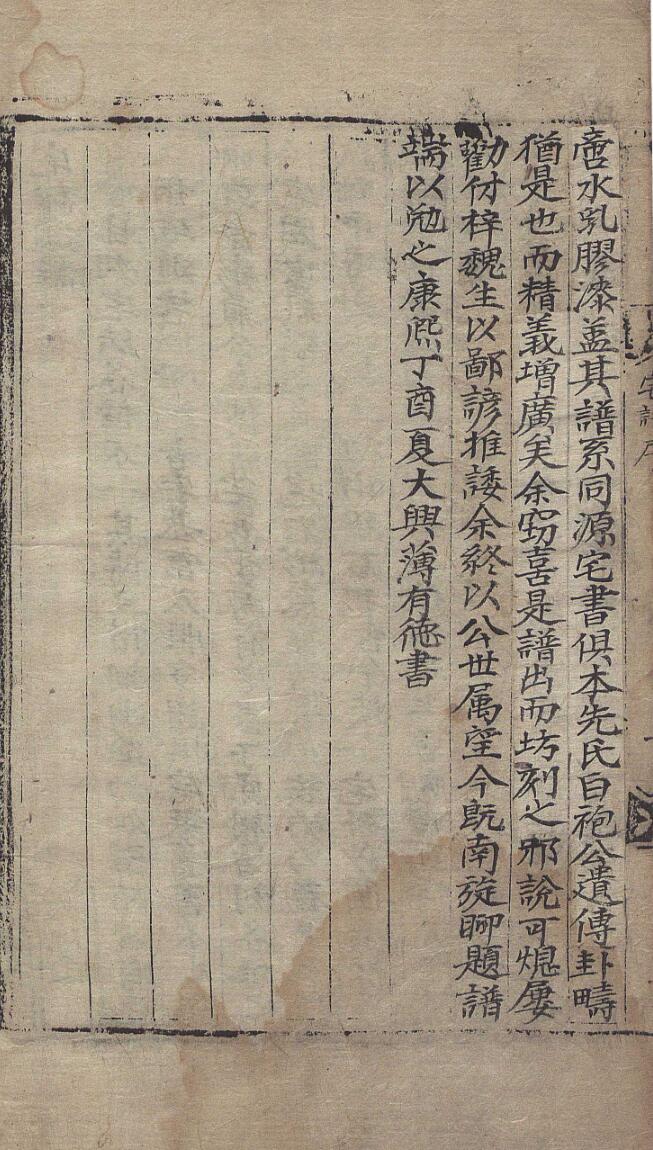 啻水乳膠漆盖其譜系同源宅書俱本先氏白袍公遺傳卦疇
猶是也而精義增廣矣余窃喜是譜出而坊刻之邪說可熄屢
勸付梓魏生以鄙諺推諉余終以公世属望今既南旋聊題譜
端以勉之康熈丁酉夏大興薄有德書
宅譜序